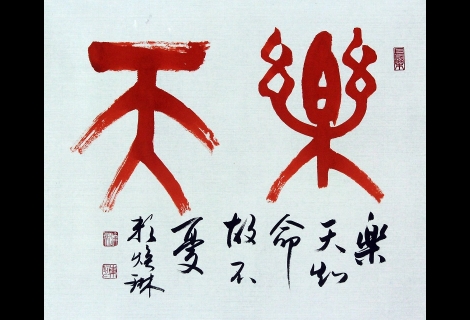 樂天
樂
天知
命
故不
憂
煥琳